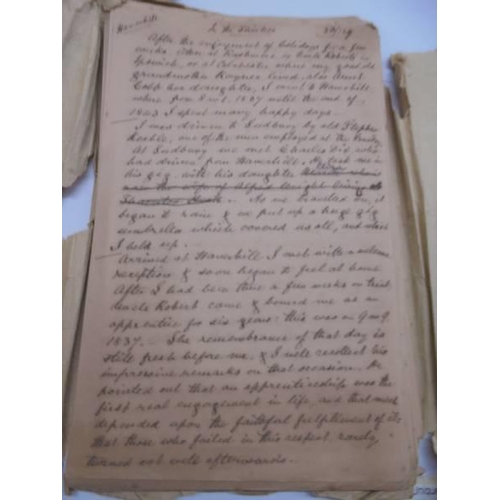 Haverhill
After the enjoyment of holidays for a few
weeks, then at Kesgrave or Uncle Roberts in
Ipswich, or at Colchester where my good old
grandmother Raynes lived, also Aunt
Cobb her daughter, I went to Haverhill
where from Sept. 1837 until the end of
1843 I spent many happy days.
I was driven to Sudbury by old Stephen
Keeble, one of the men employed at the
At Sudbury we met Charles who
had driven from Haverhill. He took me in
his gig with his daughter
was the wife of Alfred Wright living at
As we travelled on, it
began to rain & we put up a huge gig
umbrella which covered us all, and which
I held up.
Arrived at Haverhill I met with a welcome
reception & soon began to feel at home
After I had been there a few weeks on trial
Uncle Robert came & bound me as an
apprentice for six years: this was in
1837. The remembrance of that day is
still fresh before me, & I well recollect his
impressive remarks on that occasion. He
pointed out that an apprenticeship was the
first real engagement in life and that much
depended upon the faithful fulfilment of it,
that those who failed in this respect, rarely
turned out well afterwards.